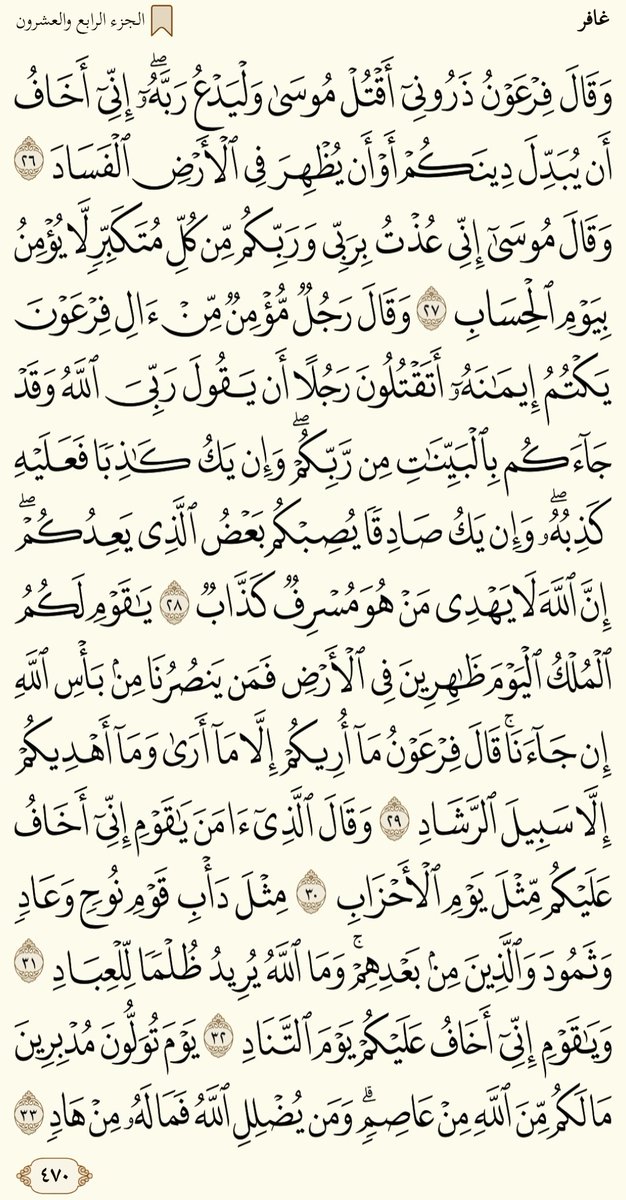 غافر
الجزء الرابع والعشرون
وَقَالَ فِرْعَوْنُ ذَرُونِىٓ أَقْتُلْ مُوسَىٰ وَلْيَدْعُ رَبَّهُۥٓ ۖ إِنِّىٓ أَخَافُ
أَن يُبَدِّلَ دِينَكُمْ أَوْ أَن يُظْهِرَ فِى ٱلْأَرْضِ ٱلْفَسَادَ ٢٦
وَقَالَ مُوسَىٰٓ إِنِّى عُذْتُ بِرَبِّى وَرَبِّكُم مِّن كُلِّ مُتَكَبِّرٍ لَّا يُؤْمِنُ
بِيَوْمِ ٱلْحِسَابِ ٢٧ وَقَالَ رَجُلٌ مُّؤْمِنٌ مِّنْ ءَالِ فِرْعَوْنَ
يَكْتُمُ إِيمَـٰنَهُۥٓ أَتَقْتُلُونَ رَجُلًا أَن يَقُولَ رَبِّىَ ٱللَّهُ وَقَدْ
جَآءَكُم بِٱلْبَيِّنَـٰتِ مِن رَّبِّكُمْ ۖ وَإِن يَكُ كَـٰذِبًا فَعَلَيْهِ
كَذِبُهُۥ ۖ وَإِن يَكُ صَادِقًا يُصِبْكُم بَعْضُ ٱلَّذِى يَعِدُكُمْ ۖ
إِنَّ ٱللَّهَ لَا يَهْدِى مَنْ هُوَ مُسْرِفٌ كَذَّابٌ ٢٨ يَـٰقَوْمِ لَكُمُ
ٱلْمُلْكُ ٱلْيَوْمَ ظَـٰهِرِينَ فِى ٱلْأَرْضِ فَمَن يَنصُرُنَا مِنۢ بَأْسِ ٱللَّهِ
إِن جَآءَنَا ۚ قَالَ فِرْعَوْنُ مَآ أُرِيكُمْ إِلَّا مَآ أَرَىٰ وَمَآ أَهْدِيكُمْ
إِلَّا سَبِيلَ ٱلرَّشَادِ ٢٩ وَقَالَ ٱلَّذِىٓ ءَامَنَ يَـٰقَوْمِ إِنِّىٓ أَخَافُ
عَلَيْكُم مِّثْلَ يَوْمِ ٱلْأَحْزَابِ ٣٠ مِثْلَ دَأْبِ قَوْمِ نُوحٍ وَعَادٍ
وَثَمُودَ وَٱلَّذِينَ مِنۢ بَعْدِهِمْ ۚ وَمَا ٱللَّهُ يُرِيدُ ظُلْمًا لِّلْعِبَادِ ٣١
وَيَـٰقَوْمِ إِنِّىٓ أَخَافُ عَلَيْكُمْ يَوْمَ ٱلتَّنَادِ ٣٢ يَوْمَ تُوَلُّونَ مُدْبِرِينَ
مَا لَكُم مِّنَ ٱللَّهِ مِنْ عَاصِمٍ ۗ وَمَن يُضْلِلِ ٱللَّهُ فَمَا لَهُۥ مِنْ هَادٍ ٣٣
٤٧٠